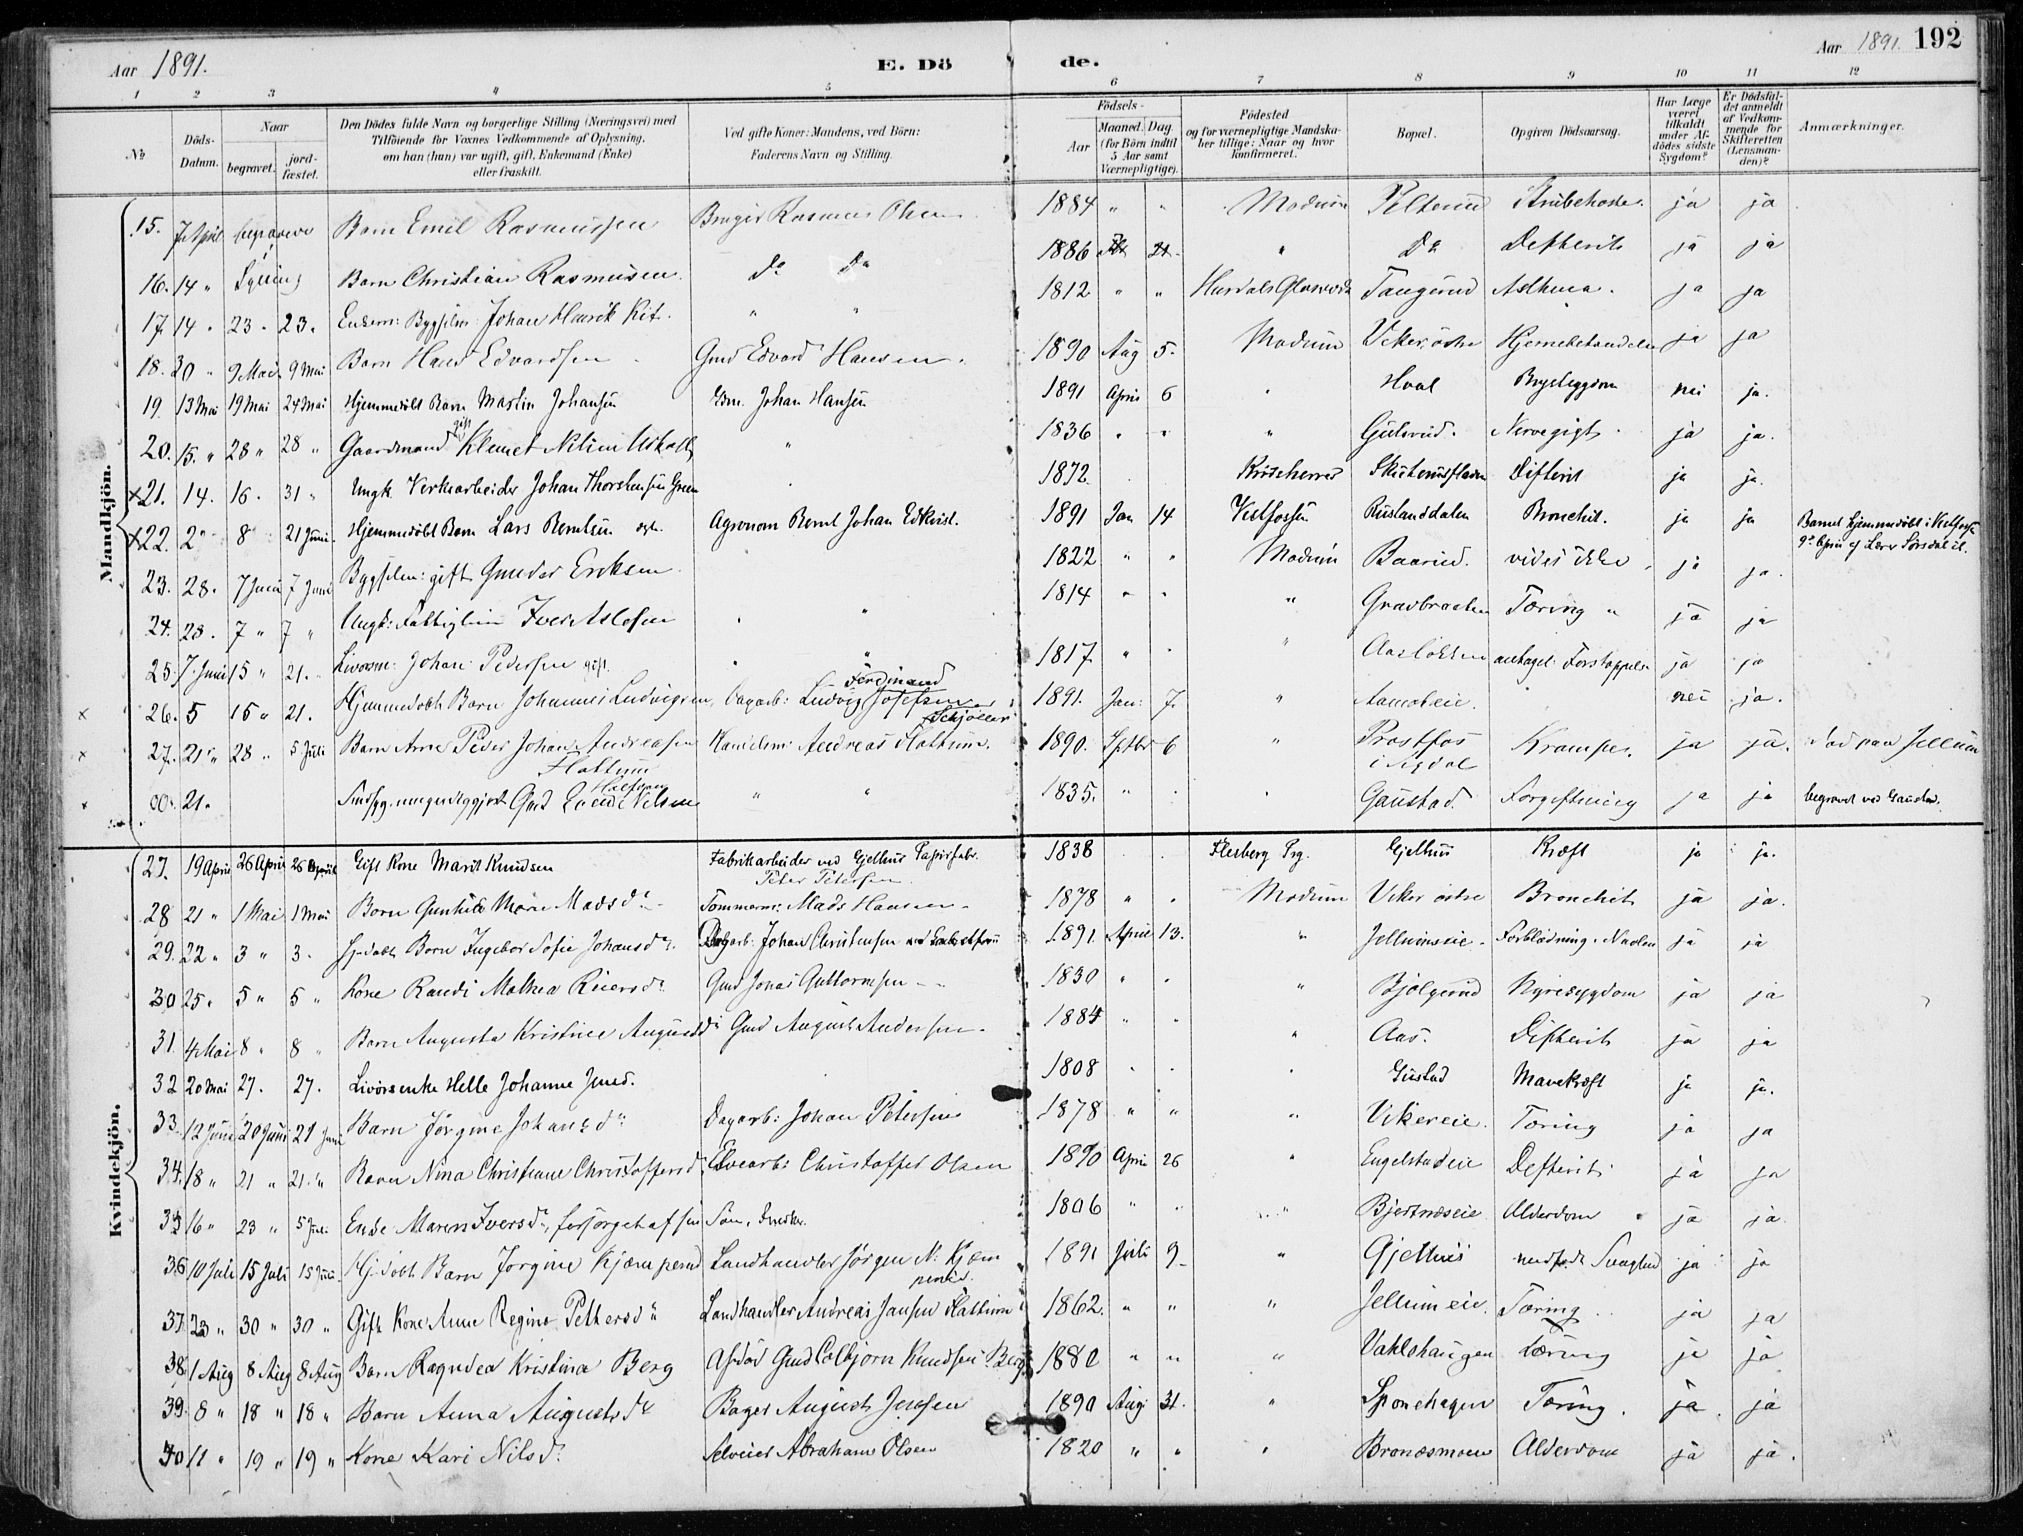 Aar 1891. E. Dö de. Aar 1891. 192
1 2 3 4 5 6 7 8 9 10 11 12
No Döds-Datum. Naar begravet. jord-fæstet. Den Dödes fulde Navn og borgerlige Stilling (Næringsvei) med Tilföiende for Voxnes Vedkommende af Oplysning, om han (hun) var ugift, gift, Enkemand (Enke) eller fraskilt. Ved gifte Koner: Mandens, ved Börn: Faderens Navn og Stilling. Födsels- Aar Maaned. Dag. (for Börn indtil 5 Aar samt Værnepligtige). Födested og for værnepligtige Mandska-ber tillige: Naar og hvor konfirmeret. Bopæl. Opgiven Dödsaarsag. Har Læge været tilkaldt under Af-dödes sidste Sygdom? Er Dödsfal-det anmeldt af Vedkom-mende for Skifteretten (Lensman-den)? Anmærkninger.
Mandkjön.
15. 7 April begravne Barn Emil Rasmussen Bruger Rasmus Olsen 1884 " " Modum Strubehoste. ja ja
16. 14 " Barn Christian Rasmusen Do Do 1886 Do Defterit ja ja
17. 14 " 23 " 23. Johan Henrik 1812 " " Hurdals Glasværk Taugerud Asthma. ja ja
18. 20 " 9 Mai 9 Mai Barn Hans Edvardsen Gmd Edvard Hansen. 1890 Aug 5. Modum Viker östre ja ja
19 13 Mai 19 Mai 24 Mai Hjemmedöbt Barn Martin Johansen Johan Hansen 1891 April 6 " Hval Brystsygdom nei ja.
20. 15. " 28 " 28 " Gaardmand gift Klemet " 1836 " " " Gulsrud. Nervegigt ja ja.
×21. 14. 16. 31 " Ungk. Verksarbeider Johan Thorstensen Green 1872 Difterit ja ja.
×22. 2 " 8 21 Juni Hjemmedöbt Barn Lars Berntsen Agronom Bernt Johan Edkvist. 1891 Jan 14 Vestfossen Ruslanddalen Bronchit. ja ja Barnet hjemmedöbt i Vestfossen
23. 28. 7 Juni 7 Juni gift Gunder Eriksen 1822 " " Modum Baarud. vides ikke ja ja.
24. 28. 7 " 7 " Ungk: Fattiglem Iver Aslesen " " 1814 " " " Gravbraaten Tæring ja ja
25. 7 Juni 15 " 21. Johan Pedersen gift. " " 1817 " " " antagel. Forstoppelse ja ja
× 26. 5 15 " 21. Hjemmedöbt Barn Johannes Ludvigsen, Dagarb: Ludvig Ferdinand Josefsen 1891. Jan: 7. " Aamoteie. nei ja.
× 27. 21 " 28 " 5 Juli Barn Arne Peder Johan Andreasen Flattum Andreas Flattum. 1890. Sptbr 6 " Prostfos i Sigdal Kramper. ja ja. Död paa Jellum
× 00. 21. Gmd Nilsen " " 1835. " " Gaustad. Forgiftning ja ja begravet ved Gaustad.
Kvindekjön.
27. 19 April 26 April 26 April Gift Kone Marit Knudsen Fabrikarbeider ved Gjethus Papirfabr. Peter Petersen 1838 Flesberg Prg. Gjethus Kræft ja ja.
28 21 " 1 Mai 1 Mai Barn Gunhild Marie Madsdr. Tömmerm: Mads Hansen 1878 " " Modum Viker östre Bronchit ja ja.
29. 22 " 3 " 3. Hjdöbt Barn Ingebor Sofie Johansdr. Dagarb: Johan Christensen 1891. April 13. " Jellumseie. Forblödning i Navlen ja ja
30 25. 5 " 5 " Kone Randi Mathea Reiersdr Gmd Jonas Guttormsen 1830 " " " Bjölgerud Nyresygdom ja ja
31. 4 Mai 8 " 8 " Barn Augusta Kristine Augustdr Gmd August Andersen. 1884 " " " Aas. Difterit ja ja
32 20 Mai 27. 27. Livörsenke Helle Johanne Jensd. 1808 " Gustad Mavekræft ja ja.
33. 12 Juni 20 Juni 21 Juni Barn Jörgine Johansdr Dagarb: Johan Petersen 1878 " " " Vikereie. Tæring ja ja
34. 18 " 21 " 21. " Barn Nina Christiane Christoffersd Elvearb: Christoffer Olsen 1890 April 26 " Engelstadeie Defterit ja ja
35 16 " 23 " 5 Juli Enke Maren Iversdr, forsörget af sin Sön, Snedker. 1806 " " " Bjertnæseie. Alderdom ja ja.
36 10 Juli 15 Juli 15 Juli Hjdöbt Barn Jörgine Kjæmperud Landhandler Jörgen N. Kjæmperud. 1891 Juli 9. " Gjethus medfödt Svaghed ja ja
37. 23 " 30 " 30 " Gift Kone Anne Regine Pettersdr Landhandler Andreas Jansen Flattum 1862. " " " Jellumeie. Tæring. ja ja
38. 1 Aug 8 Aug 8 Aug Barn Ragndea Kristina Berg Afdöd Gmd Colbjorn Knudsen Berg 1880 " " " Vahlshaugen tæring ja ja
39. 8 " 18 " 18 " Barn Anna Augustdr Bager August Jensen 1890 Aug 31. " Sponehagen Tæring. ja. ja
40 11 " 19 " 19 " Kone Kari Nilsdr. Selveier Abraham Olsen 1820 " " " Brænesmoen Alderdom ja ja.